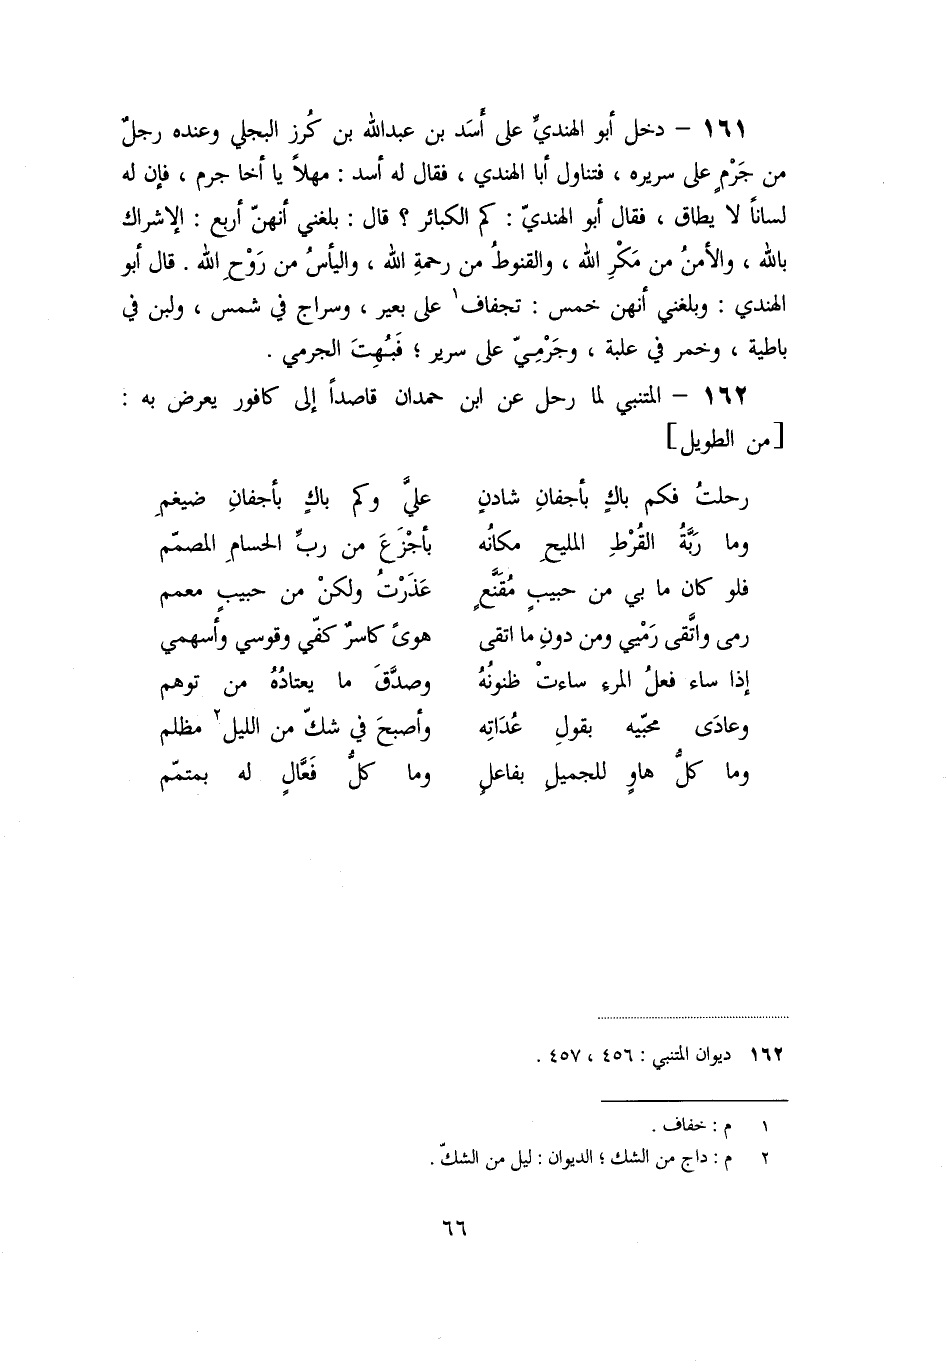 ١٦١ – دخل أبو الهنديِّ على أَسَد بن عبدالله بن كُرز البجلي وعنده رجلٌ
من جَرْمٍ على سريره ، فتناول أبا الهندي ، فقال له أسد : مهلاً يا أخا جرم ، فإن له
لساناً لا يطاق ، فقال أبو الهنديّ : كم الكبائر ؟ قال : بلغني أنهنّ أربع : الإشراك
بالله ، والأمنُ من مَكْرِ الله ، والقنوطُ من رحمةِ الله ، واليأسُ من رَوْحِ الله . قال أبو
الهندي : وبلغني أنهن خمس : تجفاف١ على بعير ، وسراج في شمس ، ولبن في
باطية ، وخمر في علبة ، وجَرْمِيّ على سرير ؛ فَبُهِتَ الجرمي .
١٦٢ – المتنبي لما رحل عن ابن حمدان قاصداً إلى كافور يعرض به :
[من الطويل]
رحلتُ فكم باكٍ بأجفانِ شادنٍ عليَّ وكم باكٍ بأجفانِ ضيغمِ
وما رَبَّةُ القُرْطِ المليحِ مكانُه بأجْزَعَ من ربِّ الحسامِ المصمّم
فلو كان ما بي من حبيبٍ مُقَنَّعٍ عَذَرْتُ ولكنْ من حبيبٍ معمم
رمى واتَّقى رَمْيي ومن دونِ ما اتقى هوىً كاسرٌ كفّي وقوسي وأسهمي
إذا ساء فعلُ المرءِ ساءتْ ظنونُهُ وصدَّقَ ما يعتادُهُ من توهم
وعادَى محبّيه بقولِ عُدَاتِه وأصبحَ في شكّ من الليل٢ مظلم
وما كلُّ هاوٍ للجميلِ بفاعلٍ وما كلُّ فَعَّالٍ له بمتمّم
١٦٢ ديوان المتنبي : ٤٥٦ ، ٤٥٧ .
١ م : خفاف .
٢ م : داج من الشك ؛ الديوان : ليل من الشكّ .
٦٦